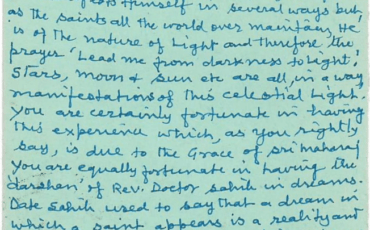 Himself in several ways but,
as the saints all the world over maintain, He
is of the nature of Light and therefore the
prayer 'Lead me from darkness to Light'.
Stars, moon & sun etc are all, in a way
manifestations of this celestial Light.
You are certainly fortunate in having
this experience which, as you rightly
say, is due to the Grace of Sri maharaj
You are equally fortunate in having the
'darshan' of Rev. Doctor sahib in dreams.
Sahib used to say that a dream in
which a saint appears is a reality and